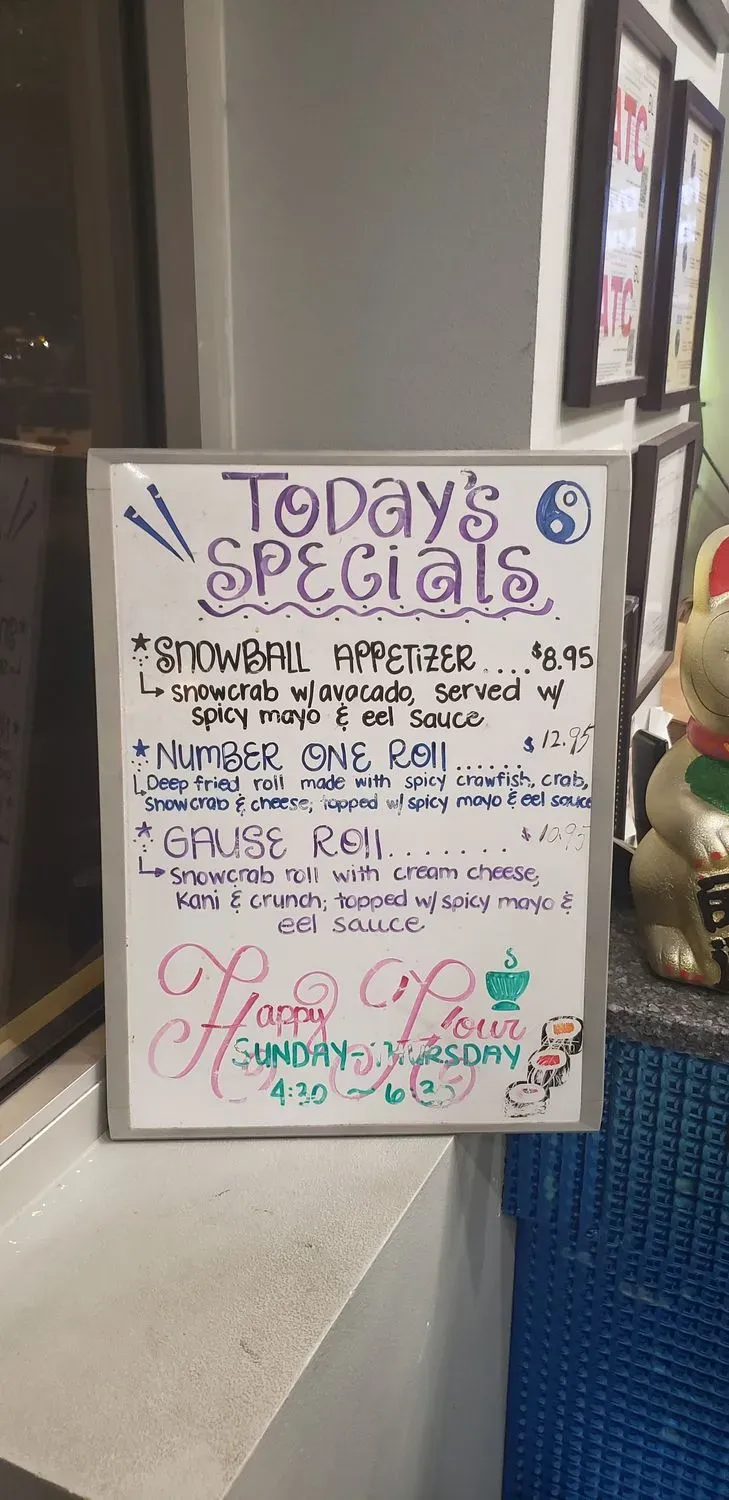 TODAY'S
SPECIALS
SNOWBALL APPETIZER....$8.95
snowcrab w/avocado, served w/
spicy mayo & eel sauce
NUMBER ONE ROLL...... $12.95
Deep fried roll made with spicy crawfish, crab,
Snowcrab & cheese; topped w/ spicy mayo & eel sauce
GAUSE ROLL....... $10.95
Snowcrab roll with cream cheese,
Kani & crunch; topped w/ spicy mayo &
eel sauce
Happy Hour
SUNDAY-THURSDAY
4:30 ~ 6:30
ATC
ATC